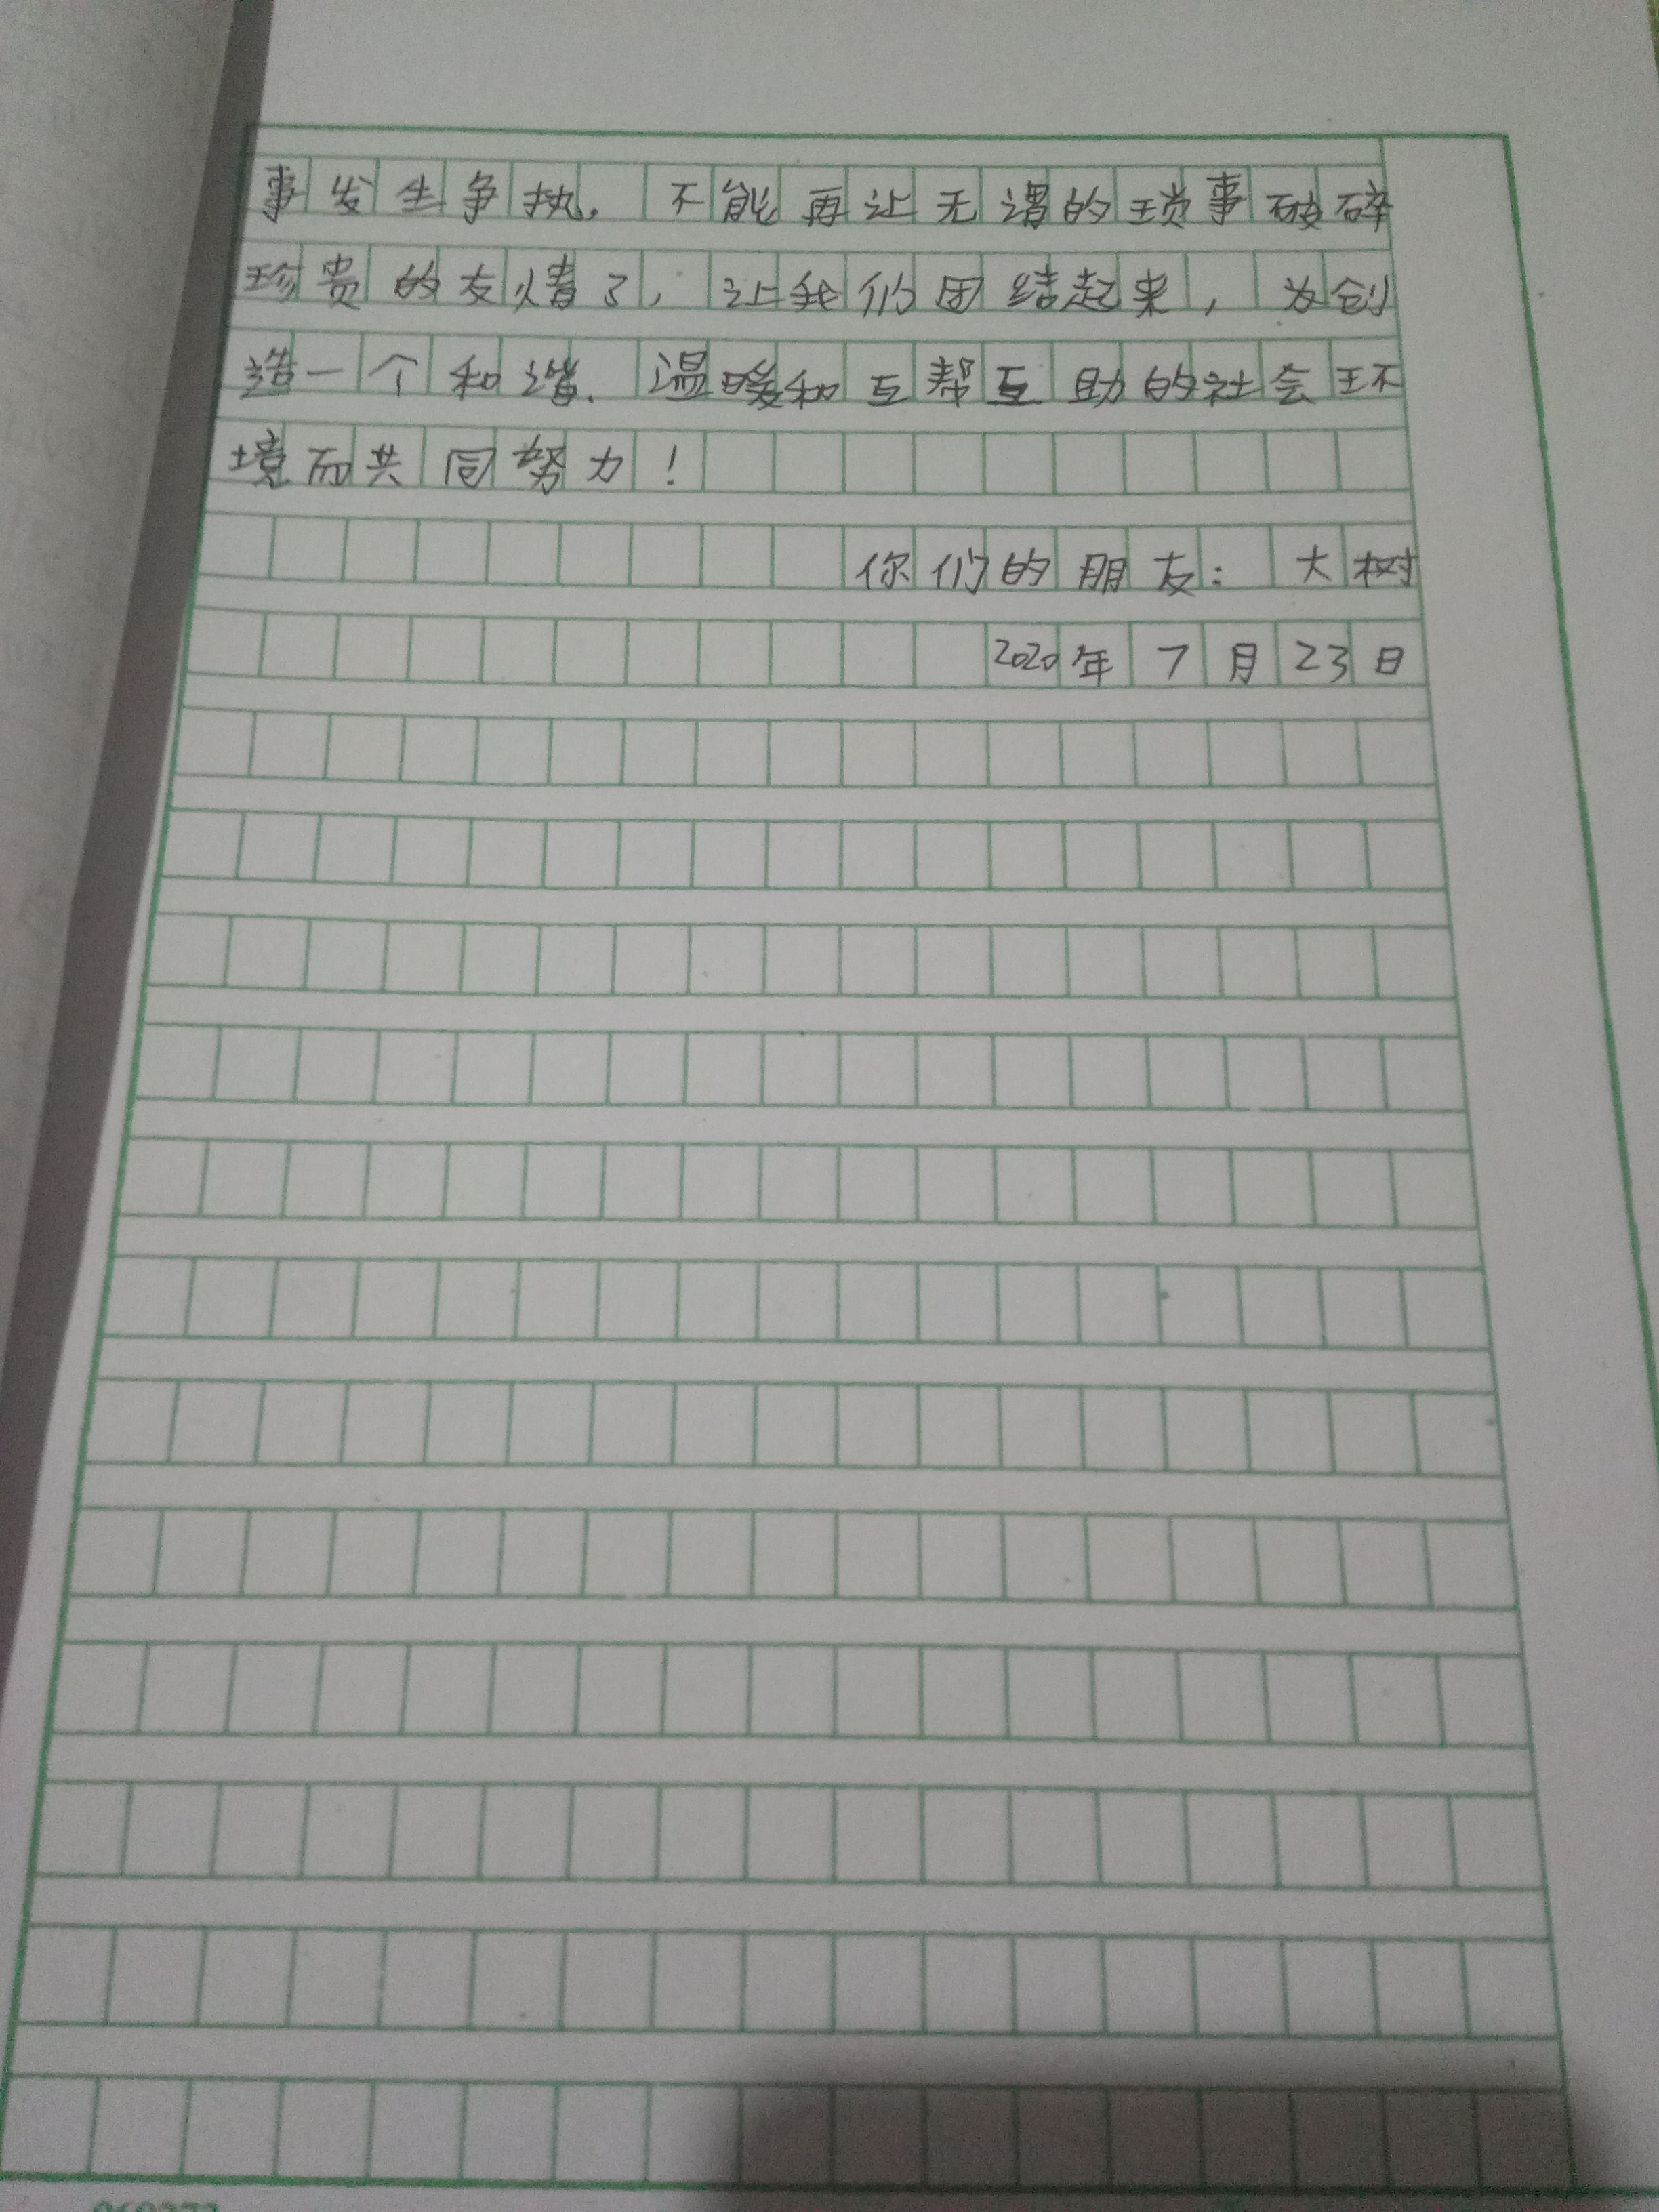 事发生争执. 不能再让无谓的琐事破碎
珍贵的友情了, 让我们团结起来, 为创
造一个和谐.温暖和互帮互助的社会环
境而共同努力!
你们的朋友: 大树
2020年7月23日